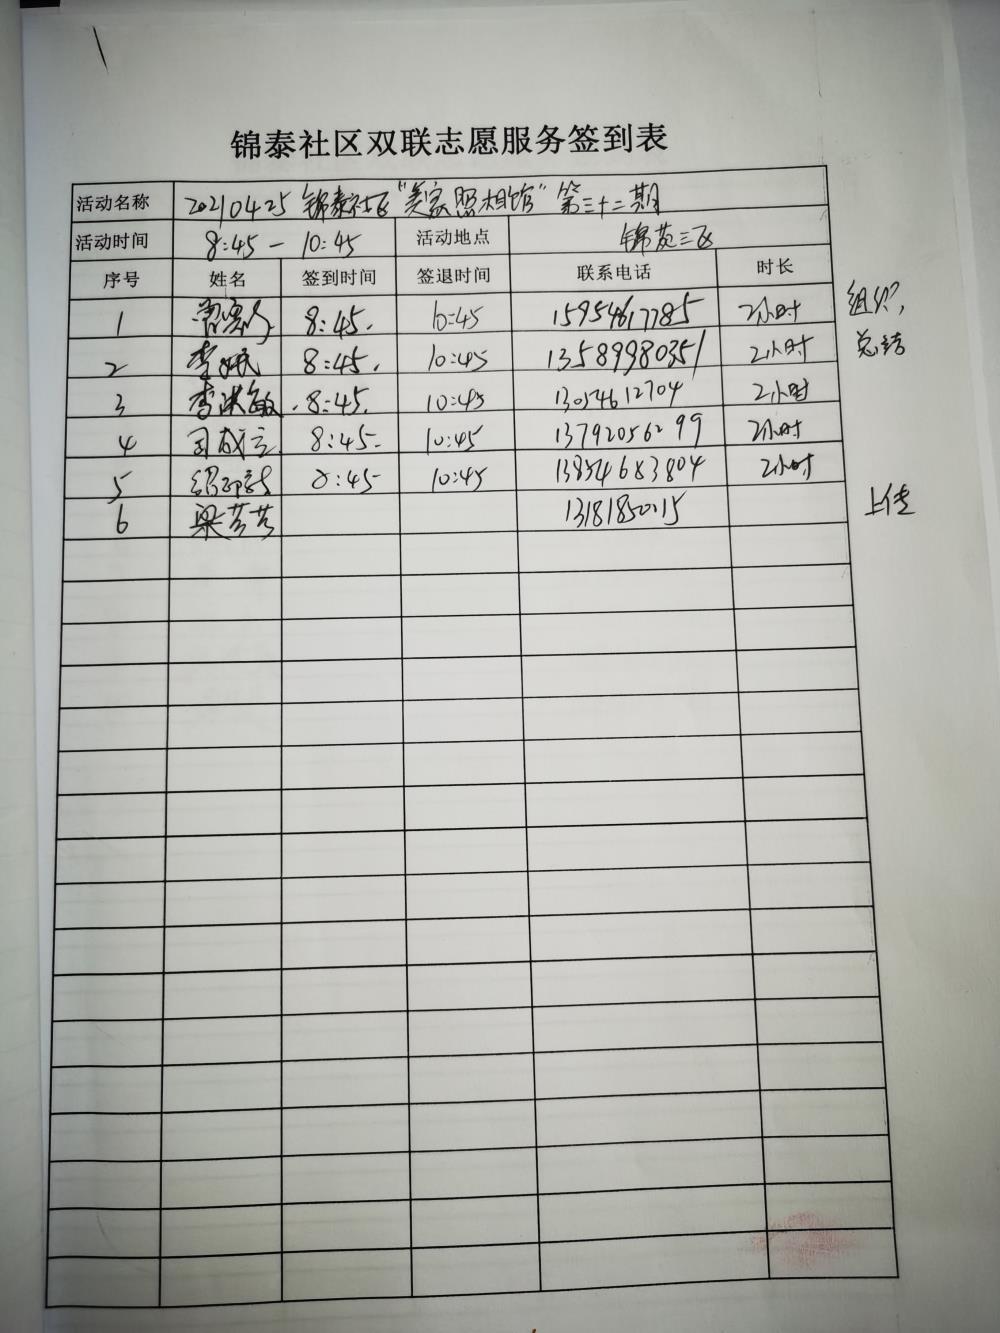 锦泰社区双联志愿服务签到表
活动名称 20210425 锦泰社区"美家照相馆"第三十二期
活动时间 8:45-10:45 活动地点 锦苑三区
序号 姓名 签到时间 签退时间 联系电话 时长
1 8:45. 10:45 15954617785 2小时 组织,
2 李斌 8:45. 10:45 13589980351 2小时 总结
3 李洪敏 8:45. 10:45 13054612704 2小时
4 司成立 8:45. 10:45 13792056299 2小时
5 8:45 10:45 13854683804 2小时
6 梁芸芸 上传